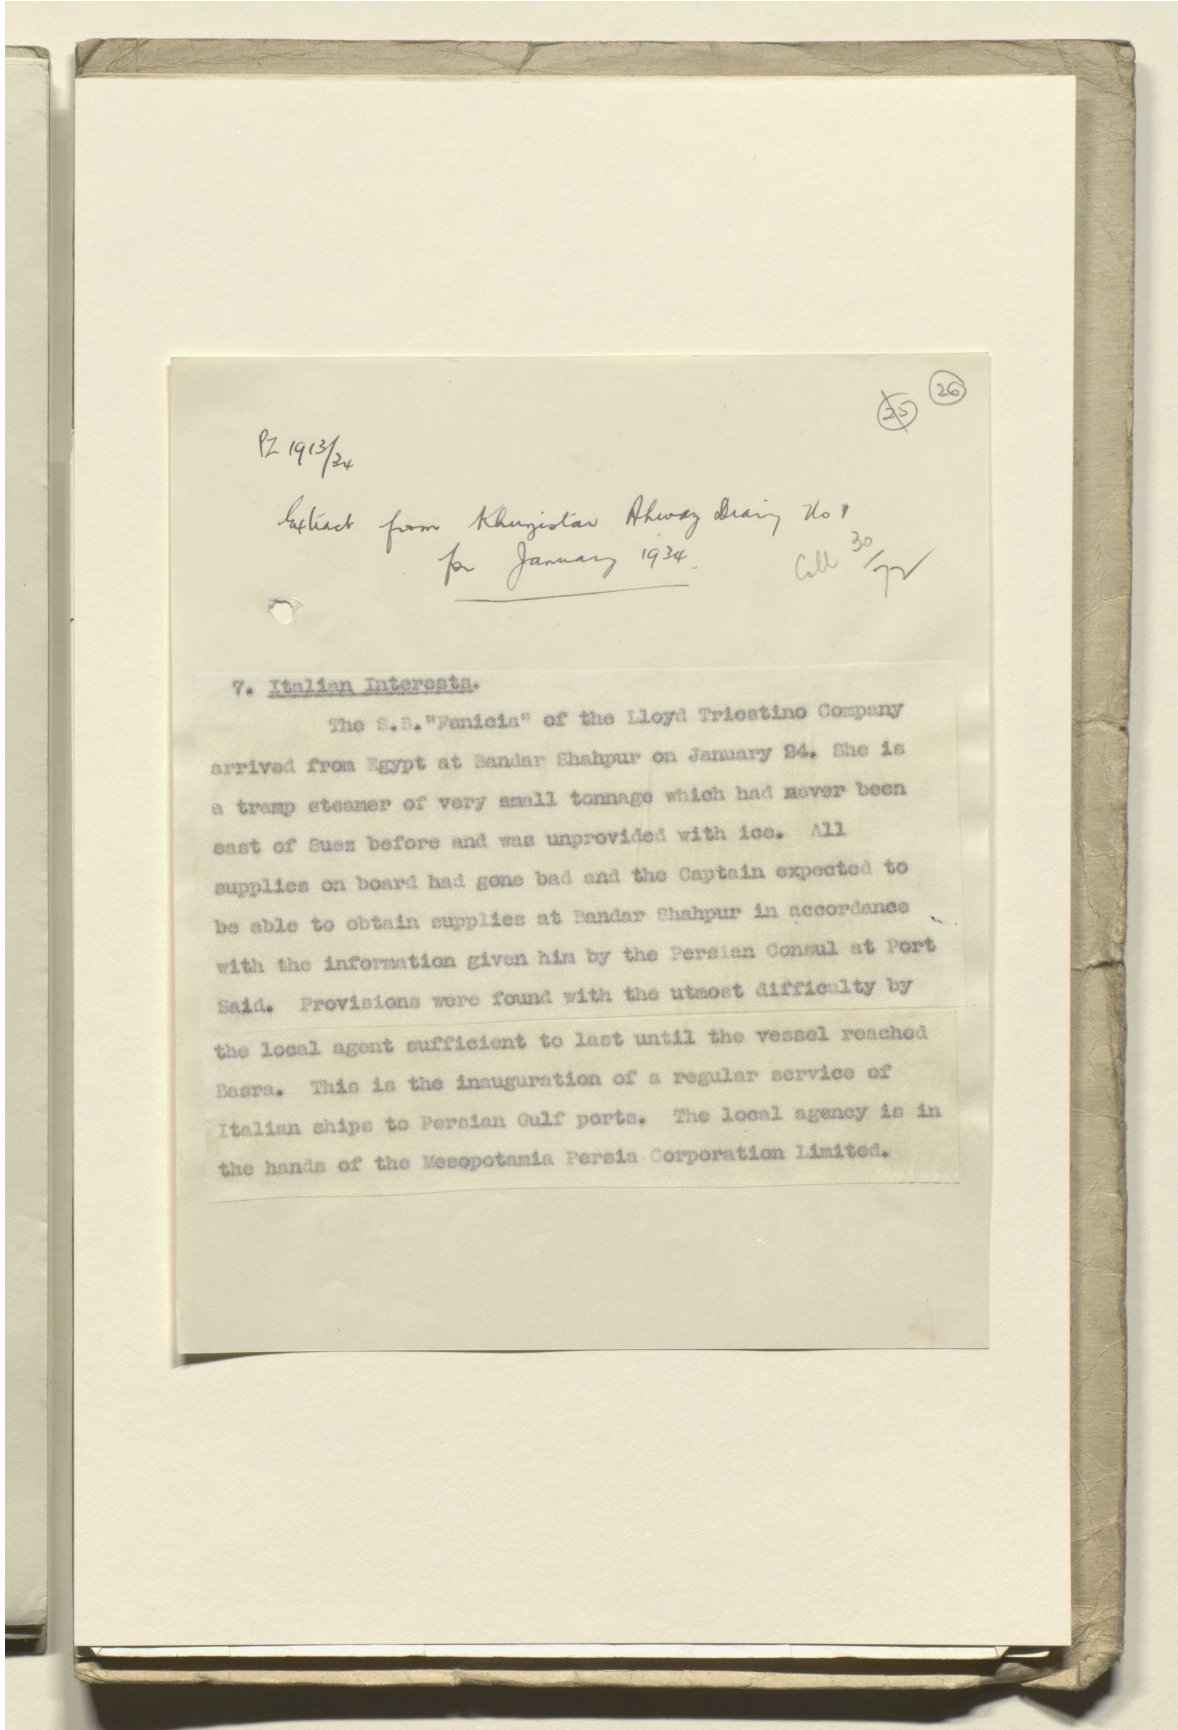 26
25
PZ 1913/34
Extract from Khuzistan Ahwaz Diary No 1
for January 1934.
Coll 30/72
7. Italian Interests.
The S.S."Fenicia" of the Lloyd Triestino Company
arrived from Egypt at Bandar Shahpur on January 24. She is
a tramp steamer of very small tonnage which had never been
east of Suez before and was unprovided with ice. All
supplies on board had gone bad and the Captain expected to
be able to obtain supplies at Bandar Shahpur in accordance
with the information given him by the Persian Consul at Port
Said. Provisions were found with the utmost difficulty by
the local agent sufficient to last until the vessel reached
Basra. This is the inauguration of a regular service of
Italian ships to Persian Gulf ports. The local agency is in
the hands of the Mesopotamia Persia Corporation Limited.